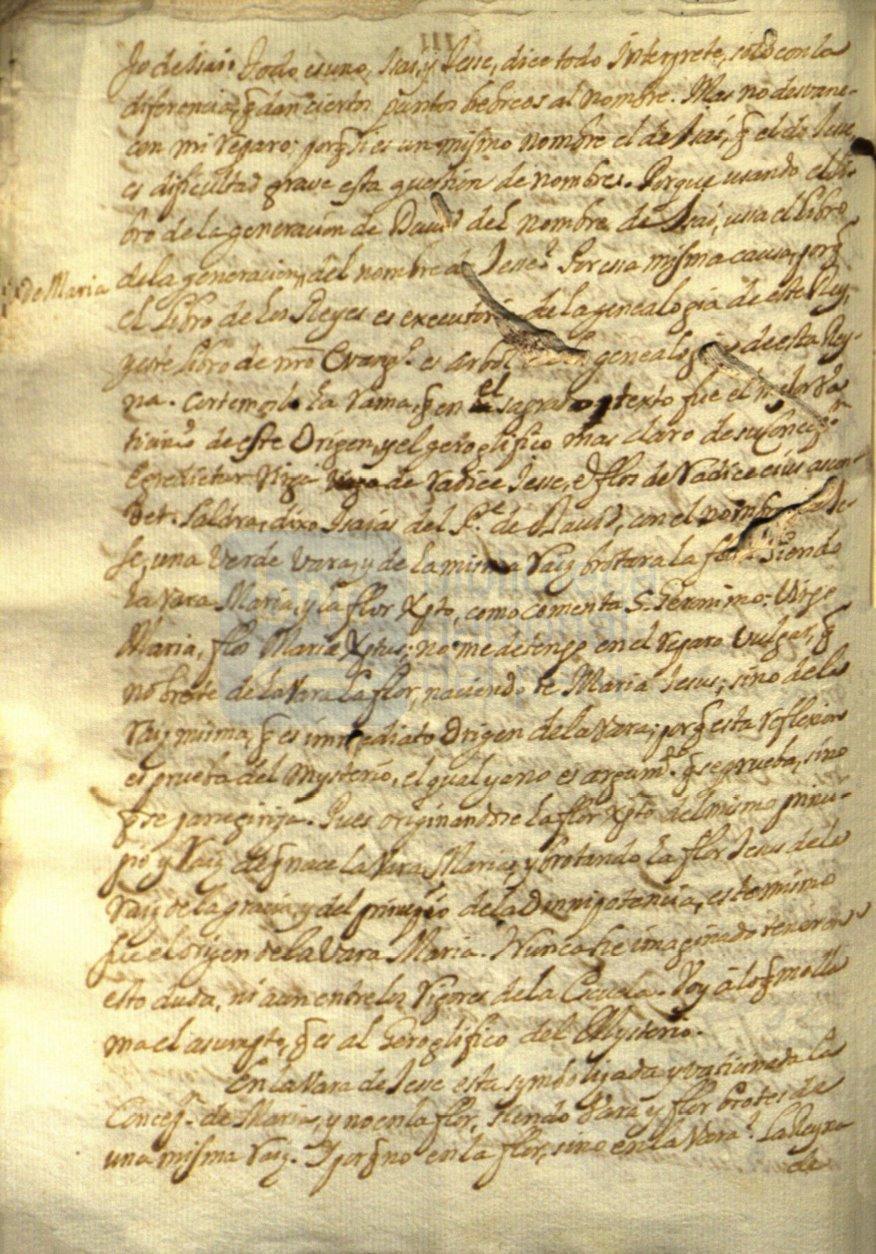 jo de Isai. Todo es uno, Isai, y Jesse, dice todo Interprete, solo con la
diferencia, q̃ dan ciertos puntos hebreos al nombre. Mas no desvane-
cen mi reparo: porq̃ si es un mismo nombre el de Isai, q̃ el de Jesse,
es dificultad grave esta question de nombres. Porque usando el li-
bro de la generacion de David del nombre de Isai, usa el libro
de Maria
de la generacion del nombre de Jesse? Por essa misma causa, porq̃
el Libro de los Reyes es executoria de la genealogia de este Rey,
y este libro de nr̃o Evang.º es arbol genealogia de esta Rey-
na. Cortemosle la rama, q̃ en el sagrado texto fue el mejor va
ticinio de este Origen, y el geroglifico mas claro de su Concepⁿ
Egredietur Virga de radice Jesse, & flos de radice eius ascen-
det. Saldra, dixo Isaias del P.ᵉ de David, con el nombre de Je-
se, una verde vara, y de la misma raiz brotara la flor. Siendo
la vara Maria, y la flor Xpto, como comenta S. Geronimo: Virga
Maria, flos Mariæ Xptus; no me detengo en el reparo vulgar, q̃
no brote de la vara la flor, naciendo de Maria Jesus; sino de la
raiz misma, q̃ es immediato Origen de la vara; porq̃ esta reflexion
es prueba del Mysterio, el qual ya no es argum.ᵗᵒ q̃ se prueba, sino
q̃ se panegiriza. Pues originandose la flor Xpto del mismo princi-
pio y raiz de q̃ nace la vara Maria, y brotando la flor Jesus de la
raiz de la gracia, y del principio de la Omnipotencia, este mismo
fue el origen de la vara Maria. Nunca fue imaginado tener en
esto duda, ni aun entre los rigores de la Escuela. Voy à lo q̃ me lla
ma el asumpto, q̃ es al Geroglifico del Mysterio.
En la vara de Jesse esta symbolizada y vaticinada la
Concepⁿ. de Maria, y no en la flor, siendo vara y flor brotes de
una misma raiz. Y porq̃ no en la flor, sino en la vara? La Reyna
de